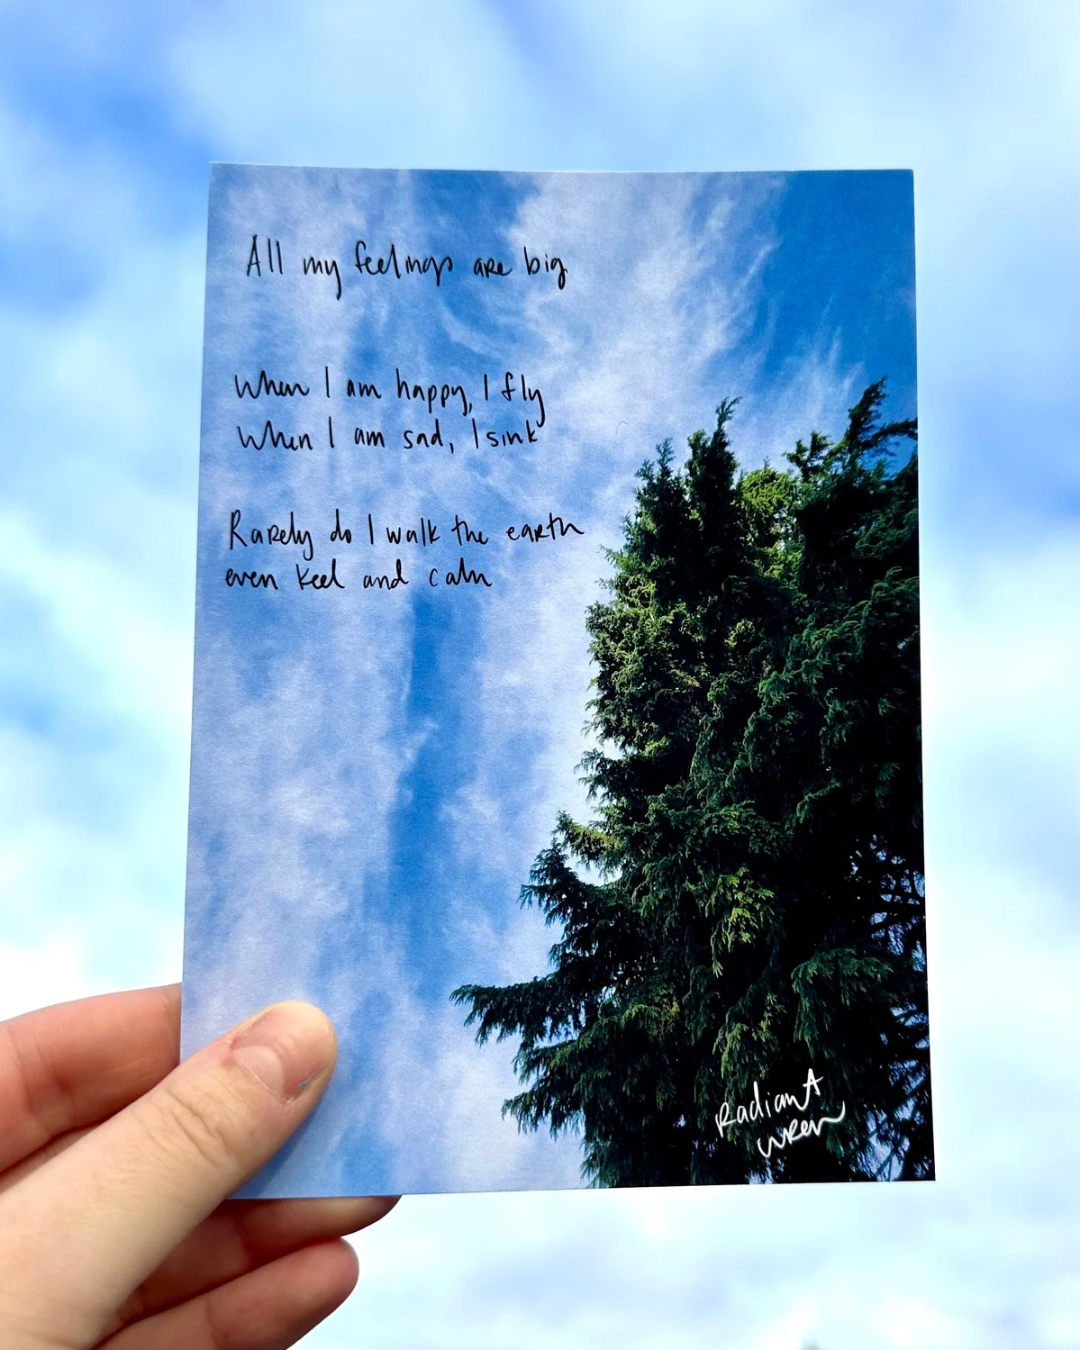 All my feelings are big
When I am happy, I fly
When I am sad, I sink
Rarely do I walk the earth
even keel and calm
Radiant
wren